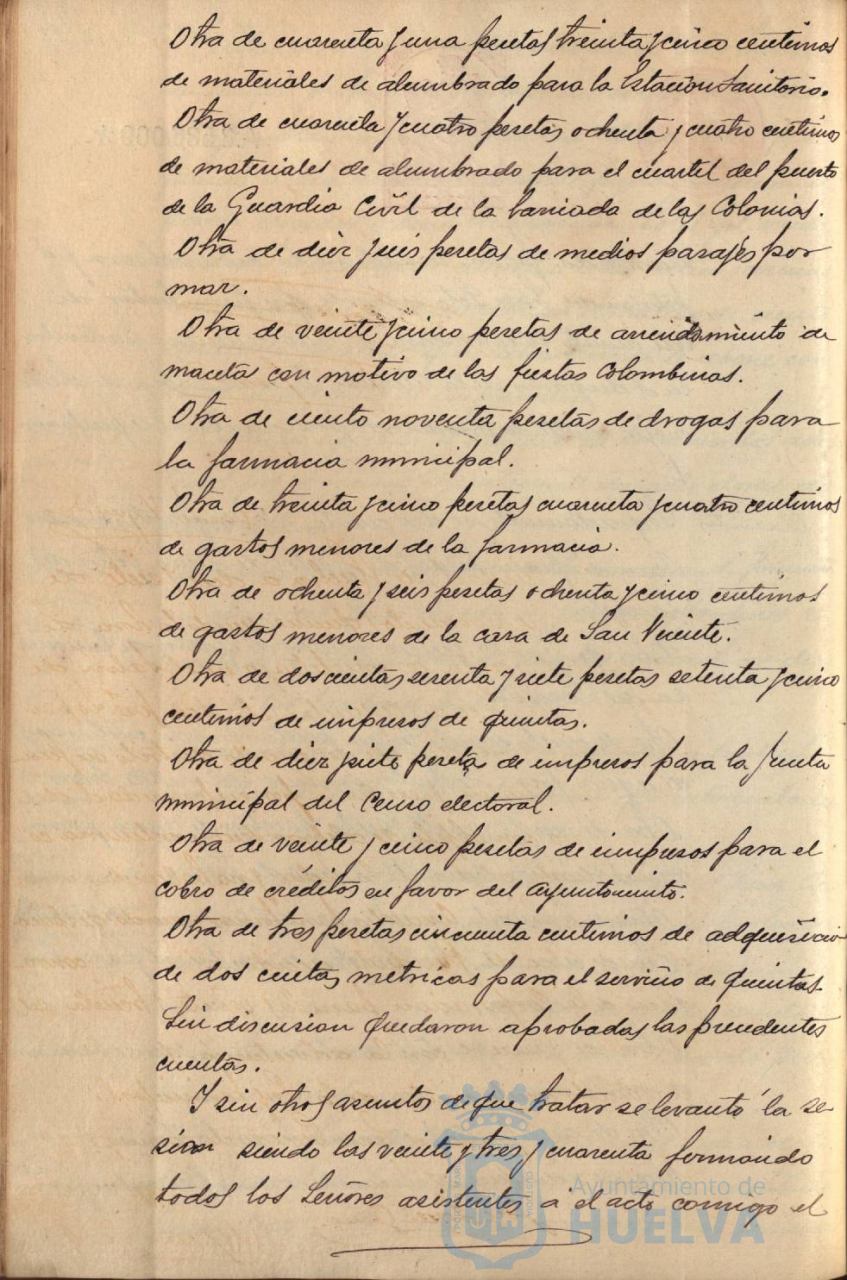 Otra de cuarenta y una pesetas treinta y cinco centimos
de materiales de alumbrado para la Estacion Sanitario.
Otra de cuarenta y cuatro pesetas ochenta y cuatro centimos
de materiales de alumbrado para el cuartel del puerto
de la Guardia Civil de la barriada de las Colonias.
Otra de diez y seis pesetas de medios pasajes por
mar.
Otra de veinte y cinco pesetas de arrendamiento de
macetas con motivo de las fiestas Colombinas.
Otra de ciento noventa pesetas de drogas para
la farmacia municipal.
Otra de treinta y cinco pesetas cuarenta y cuatro centimos
de gastos menores de la farmacia.
Otra de ochenta y seis pesetas ochenta y cinco centimos
de gastos menores de la casa de San Vicente.
Otra de doscientas sesenta y siete pesetas setenta y cinco
centimos de impresos de quintas.
Otra de diez y siete pesetas de impresos para la Junta
municipal del Censo electoral.
Otra de veinte y cinco pesetas de impresos para el
cobro de créditos en favor del Ayuntamiento.
Otra de tres pesetas cincuenta centimos de adquisicion
de dos cintas metricas para el servicio de Quintas.
Sin discusion quedaron aprobadas las precedentes
cuentas.
Y sin otros asuntos de que tratar se levantó la se-
sion siendo las veinte y tres y cuarenta firmando
todos los Señores asistentes a el acto conmigo el
Ayuntamiento de
HUELVA